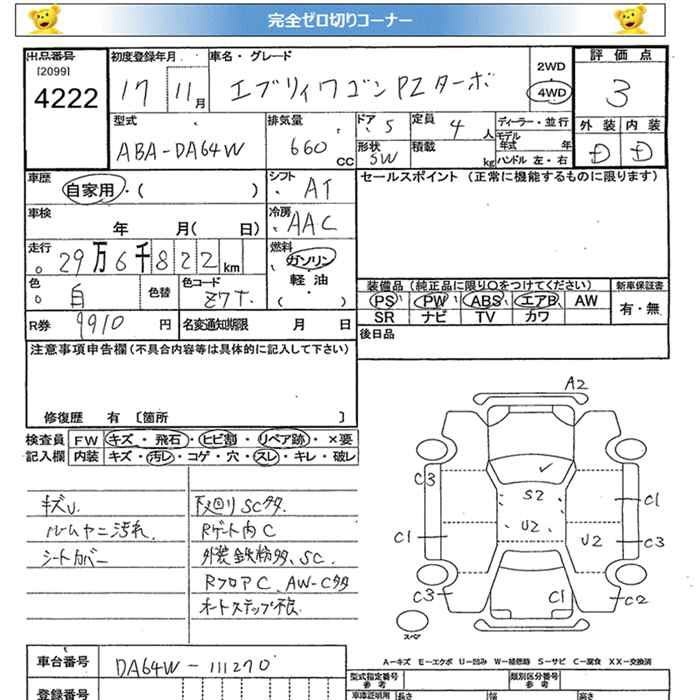 完全ゼロ切りコーナー
出品番号
[2099]
4222
初度登録年月
17 11月
車名・グレード
エブリィワゴンPZターボ
2WD
4WD
評価点
3
型式
ABA-DA64W
排気量
660 CC
ドア 5
形状 5W
定員 4人
積載 kg
ディーラー・並行
モデル年式 年
ハンドル 左・右
外装 内装
D D
車歴
自家用・( )
シフト AT
車検 年 月( 日)
冷房 AAC
セールスポイント (正常に機能するものに限ります)
走行
29万6千822km
燃料
ガソリン・軽油・( )
色 白 色替
色コード Z7T
R券 9910円
名変通知期限 月 日
装備品 (純正品に限り○をつけてください)
PS PW ABS エアB AW
SR ナビ TV カワ
新車保証書
有・無
後日品
注意事項申告欄 (不具合内容等は具体的に記入して下さい)
修復歴 有 〔箇所 〕
検査員記入欄
FW キズ・飛石・ヒビ割・リペア跡・×要
内装 キズ・汚レ・コゲ・穴・スレ・キレ・破レ
キズU
ルームヤニ汚れ
シートカバー
下廻りSC多
Rゲート内C
外装鉄粉多、SC
RフロアC、AW-C多
オートステップ不良
A2
C3
S2
C1
C1
U2
U2
C3
C3
C1
C2
スペア
A-キズ E-エクボ U-凹み W-補修跡 S-サビ C-腐食 XX-交換済
車台番号
DA64W-111270
登録番号
型式指定番号
参考
類別区分番号
参考
車庫証明用
長さ
幅
高さ